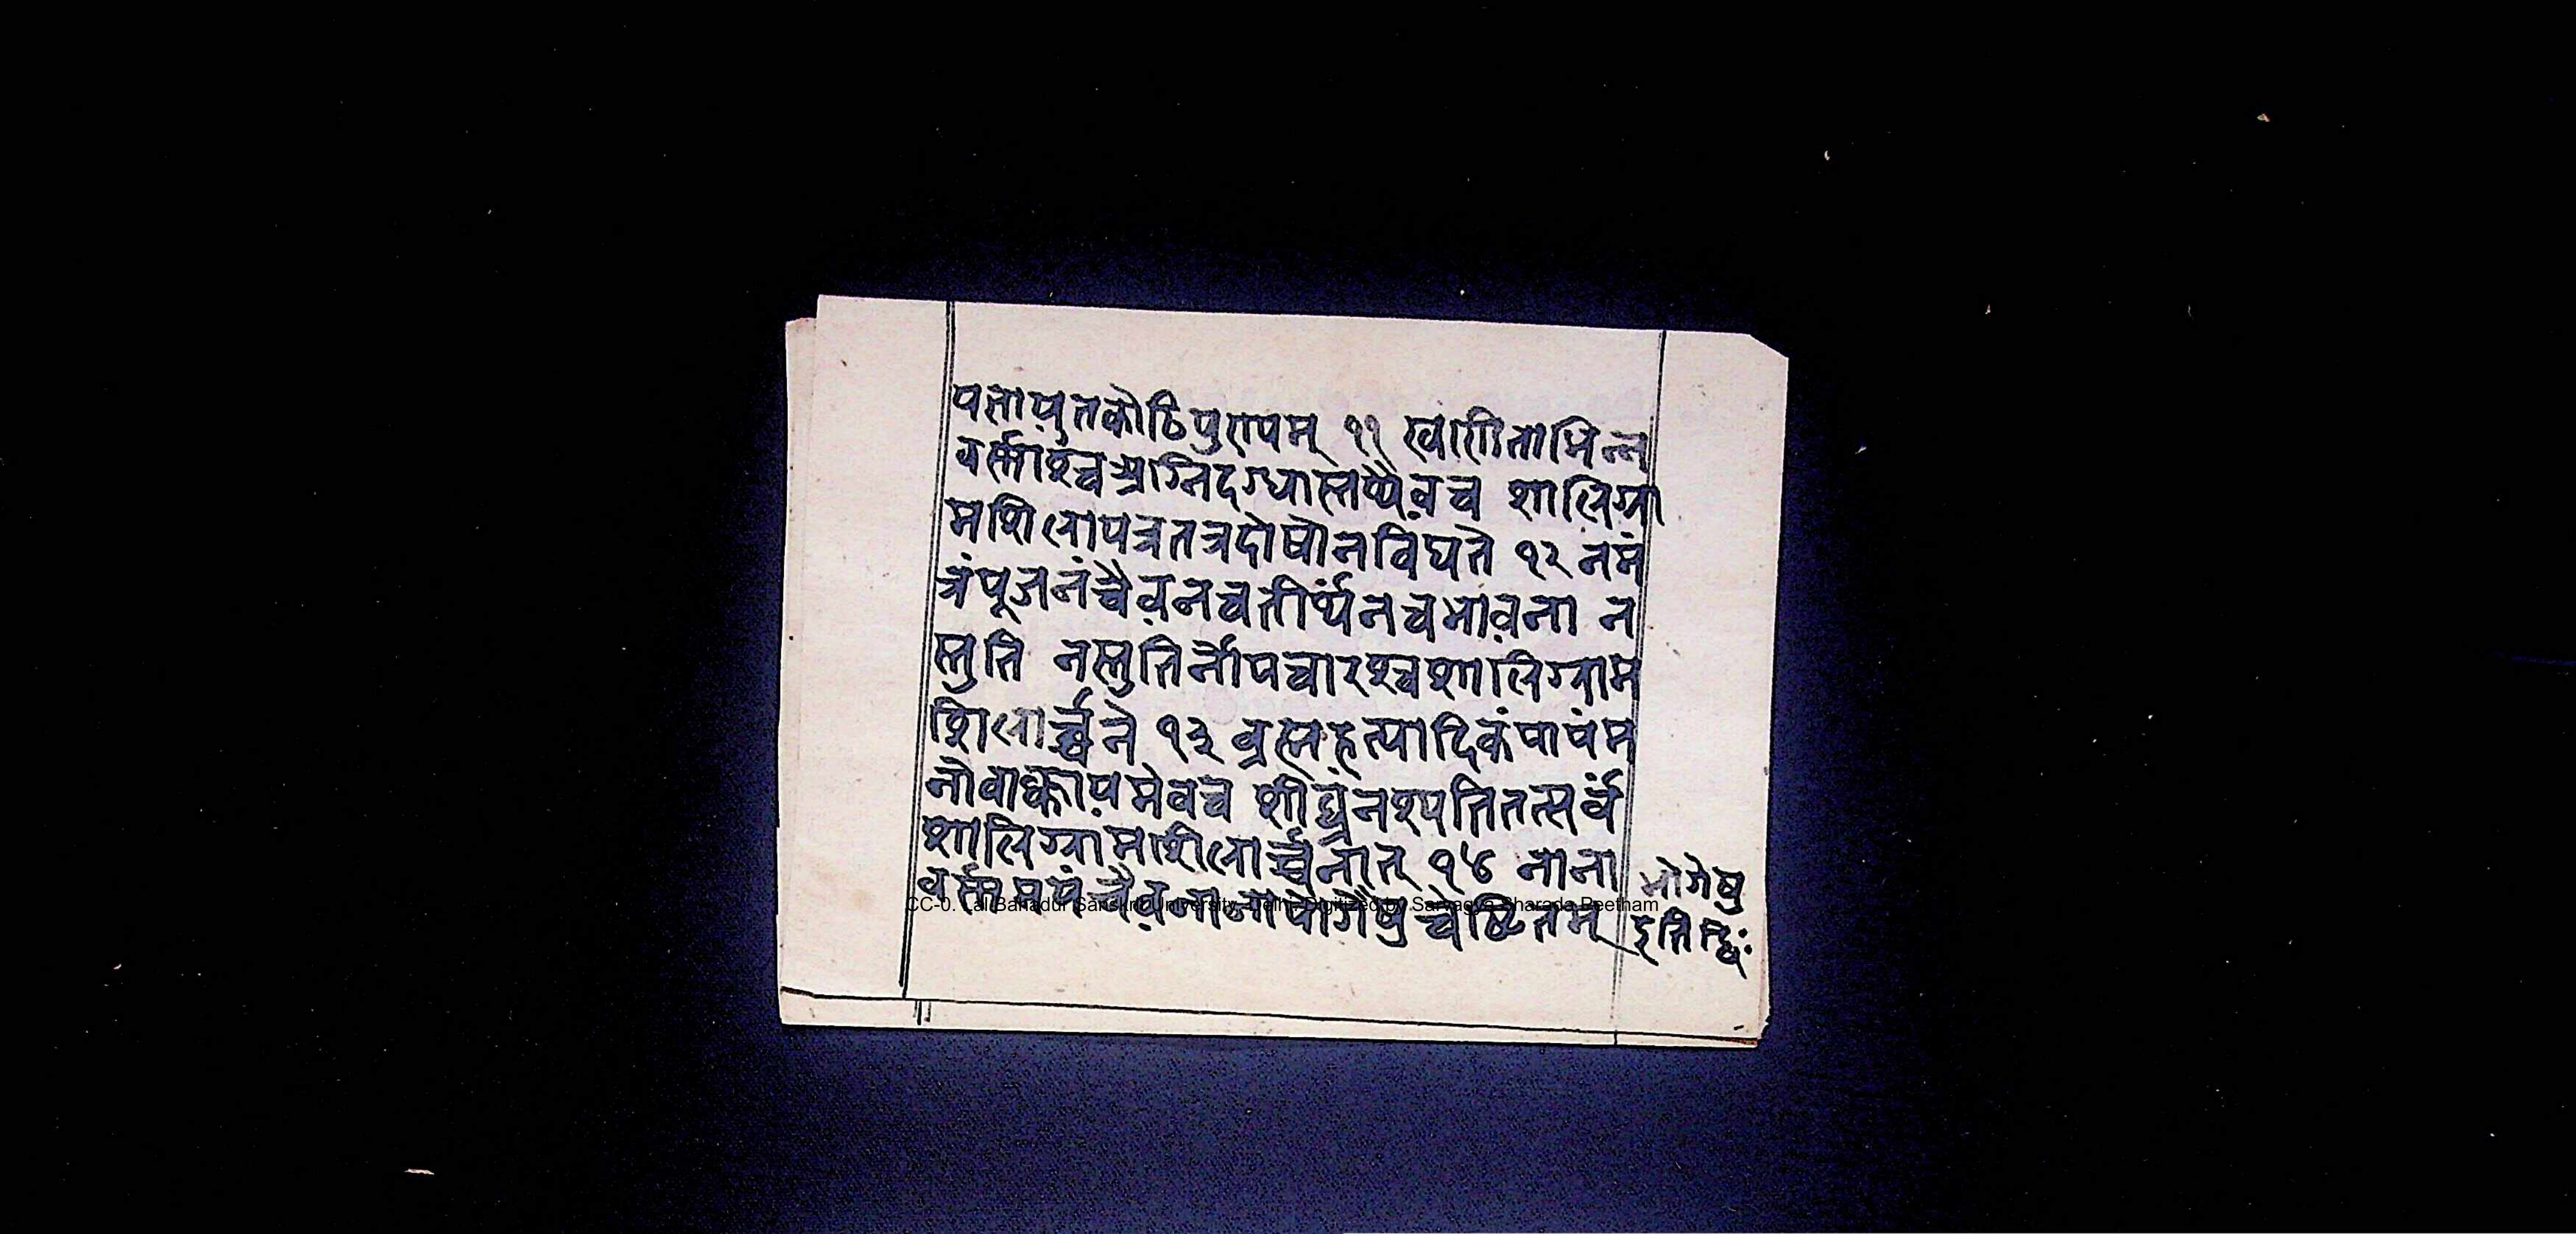 यज्ञायुतकोटिपुण्यम् ११ खण्डिताभिन्न
वर्त्माश्चअग्निदग्धास्तथैवच शालिग्रा
मशिलायत्रतत्रदोषोनविद्यते १२ नमं
त्रंपूजनंचैवनचतीर्थंनचभावना न
स्तुति नस्तुतिर्नोपचारश्चशालिग्राम
शिलार्च्चने १३ ब्रह्महत्यादिकंपापंम
नोवाक्कायमेवच शीघ्रंनश्यतितत्सर्वं
शालिग्रामशिलार्च्चनात् १४ नाना
वर्त्ममयंचैवनानायोगेषुचेष्टितम्
भोगेषु
CC-0. Lal Bahadur Sanskrit University, Delhi. Digitized by Sarvagya Sharada Peetham